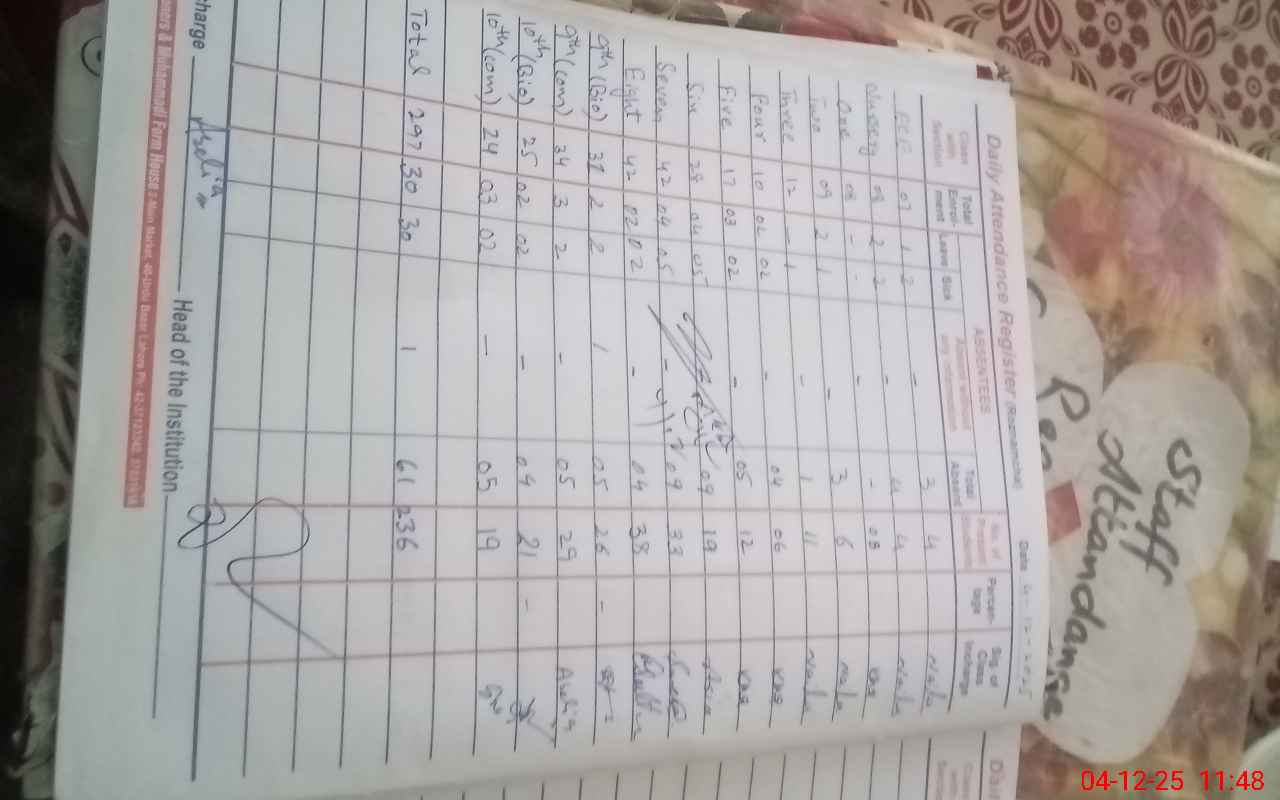 Staff
Attandance
Daily Attendance Register (Roznamcha)
Date 4-12-2025
Class with Section | Total Enrol-ment | Leave | Sick | ABSENTEES Absent without any information | Total Absent | No. of Present Students | Percen-tage | Sig. of Class Incharge
ECE 07 1 2 - 3 4 Nala
Nursery 08 2 2 - 4 4 Nala
One 08 - - - - 08
Two 09 2 1 - 3 6 Nala
Three 12 - 1 - 1 11 Nala
Four 10 02 02 - 04 06
Five 17 03 02 - 05 12
Six 28 04 05 09 19 Asia
Seven 42 04 05 - 09 33
Eight 42 02 02 - 04 38
9th (Bio) 31 2 2 1 05 26 -
9th (com) 34 3 2 - 05 29
10th (Bio) 25 02 02 - 04 21 -
10th (com) 24 03 02 - 05 19
Total 297 30 30 1 61 236
charge
Head of the Institution
& Muhammadi Form House
Main Market, 40-Urdu Bazar Lahore. Ph:
04-12-25 11:48